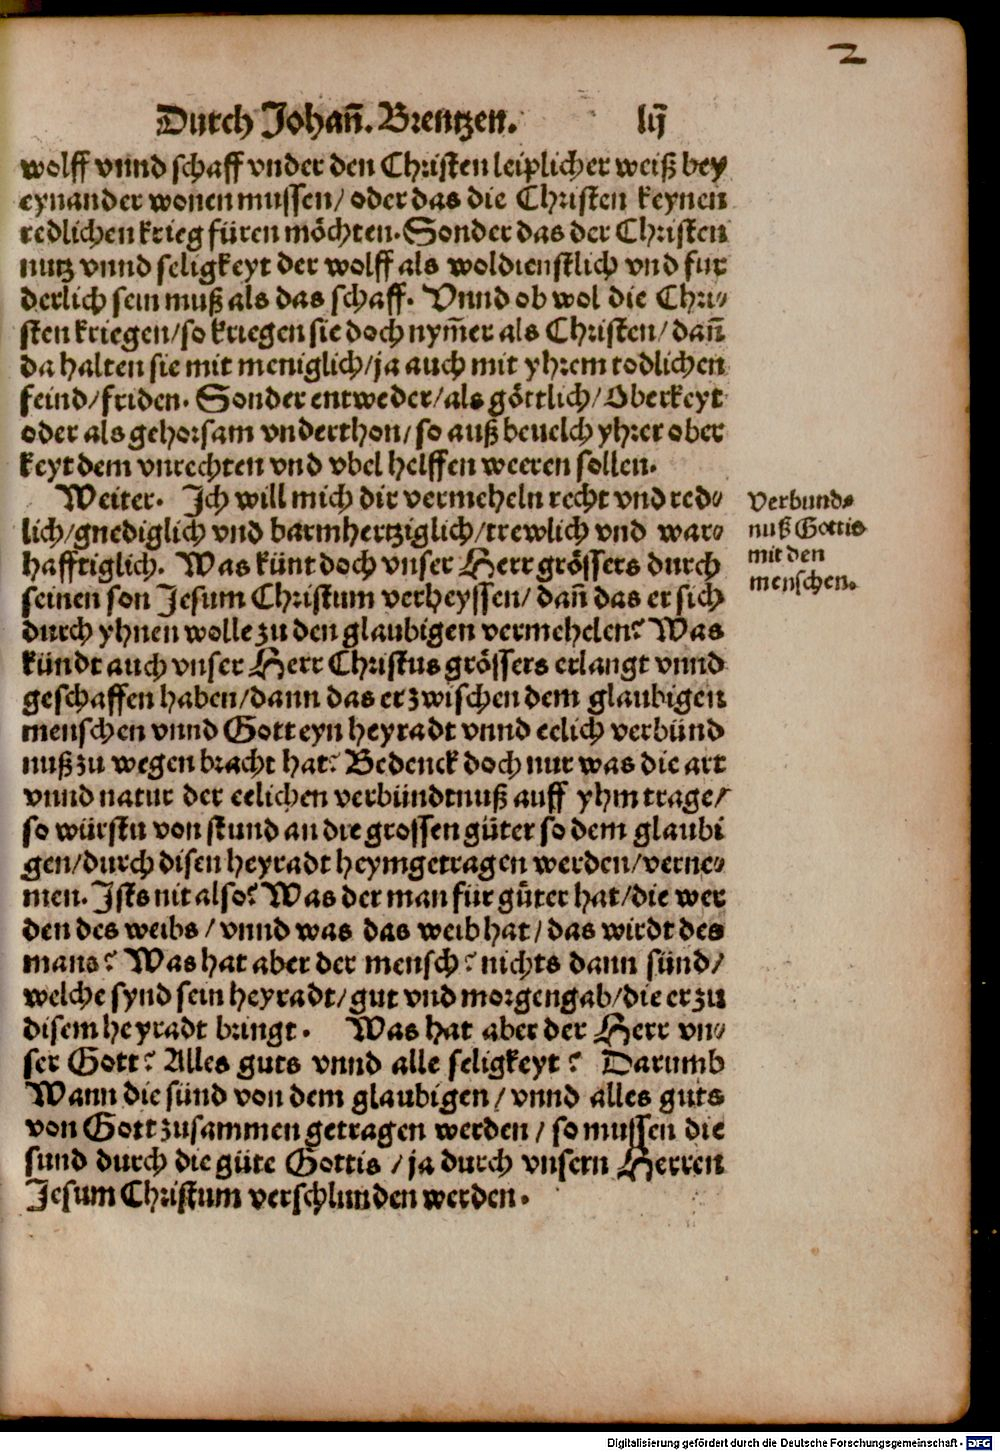 2
Durch Johañ. Brentzen. lij
wolff vnnd schaff vnder den Christen leiplicher weiß bey
eynander wonen mussen/ oder das die Christen keynen
redlichen krieg füren möchten. Sonder das der Christen
nutz vnnd seligkeyt der wolff als woldienstlich vnd fur
derlich sein muß als das schaff. Vnnd ob wol die Chri⸗
sten kriegen/so kriegen sie doch nym̃er als Christen/ dañ
da halten sie mit meniglich/ja auch mit yhrem todlichen
feind/friden. Sonder entweder/als göttlich/Oberkeyt
oder als gehorsam vnderthon/so auß beuelch yhrer ober
keyt dem vnrechten vnd vbel helffen weeren sollen.
Weiter. Ich will mich dir vermeheln recht vnd red⸗
lich/gnediglich vnd barmhertziglich/trewlich vnd war⸗
hafftiglich. Was künt doch vnser Herr grössers durch
seinen son Jesum Christum verheyssen/ dañ das er sich
durch yhnen wolle zu den glaubigen vermehelen? Was
kündt auch vnser Herr Christus grössers erlangt vnnd
geschaffen haben/dann das er zwischen dem glaubigen
menschen vnnd Gott eyn heyradt vnnd eelich verbünd
nuß zu wegen bracht hat? Bedenck doch nur was die art
vnnd natur der eelichen verbündtnuß auff yhm trage/
so würstu von stund an die grossen güter so dem glaubi
gen/durch disen heyradt heymgetragen werden/verne⸗
men. Ists nit also? Was der man für güter hat/die wer
den des weibs/ vnnd was das weib hat/ das wirdt des
mans? Was hat aber der mensch? nichts dann sünd/
welche synd sein heyradt/gut vnd morgengab/die er zu
disem heyradt bringt. Was hat aber der Herr vn⸗
ser Gott? Alles guts vnnd alle seligkeyt? Darumb
Wann die sünd von dem glaubigen/ vnnd alles guts
von Gott zusammen getragen werden/ so mussen die
sund durch die güte Gottis/ja durch vnsern Herren
Jesum Christum verschlunden werden.
Verbund⸗
nuß Gottis
mit den
menschen.
Digitalisierung gefördert durch die Deutsche Forschungsgemeinschaft - DFG